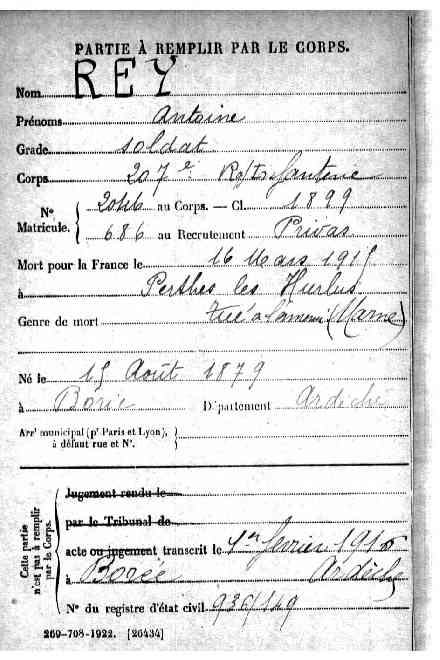 PARTIE À REMPLIR PAR LE CORPS.
Nom REY
Prénoms Antoine
Grade soldat
Corps 207e Regt Infanterie
N° Matricule. { 2046 au Corps. — Cl. 1899
686 au Recrutement Privas
Mort pour la France le 16 Mars 1915
à Perthes les Hurlus
Genre de mort Tué à l'ennemi (Marne)
Né le 15 Août 1879
à Borée Département Ardèche
Arrt municipal (pr Paris et Lyon), à défaut rue et N°. }
Cette partie n'est pas à remplir par le Corps.
Jugement rendu le
par le Tribunal de
acte ou jugement transcrit le 1er février 1916
à Borée Ardèche
N° du registre d'état civil 936/149
269-708-1922. [26434]